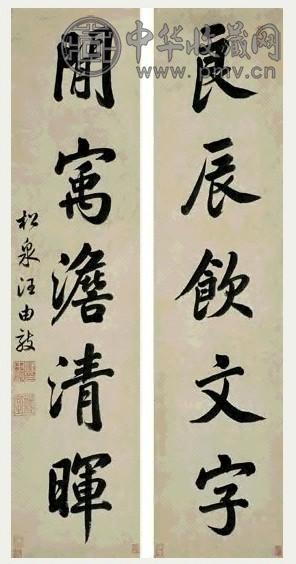 中华收藏网
www.pmv.cn
良辰飲文字
閒寓澹清暉
松泉汪由敦